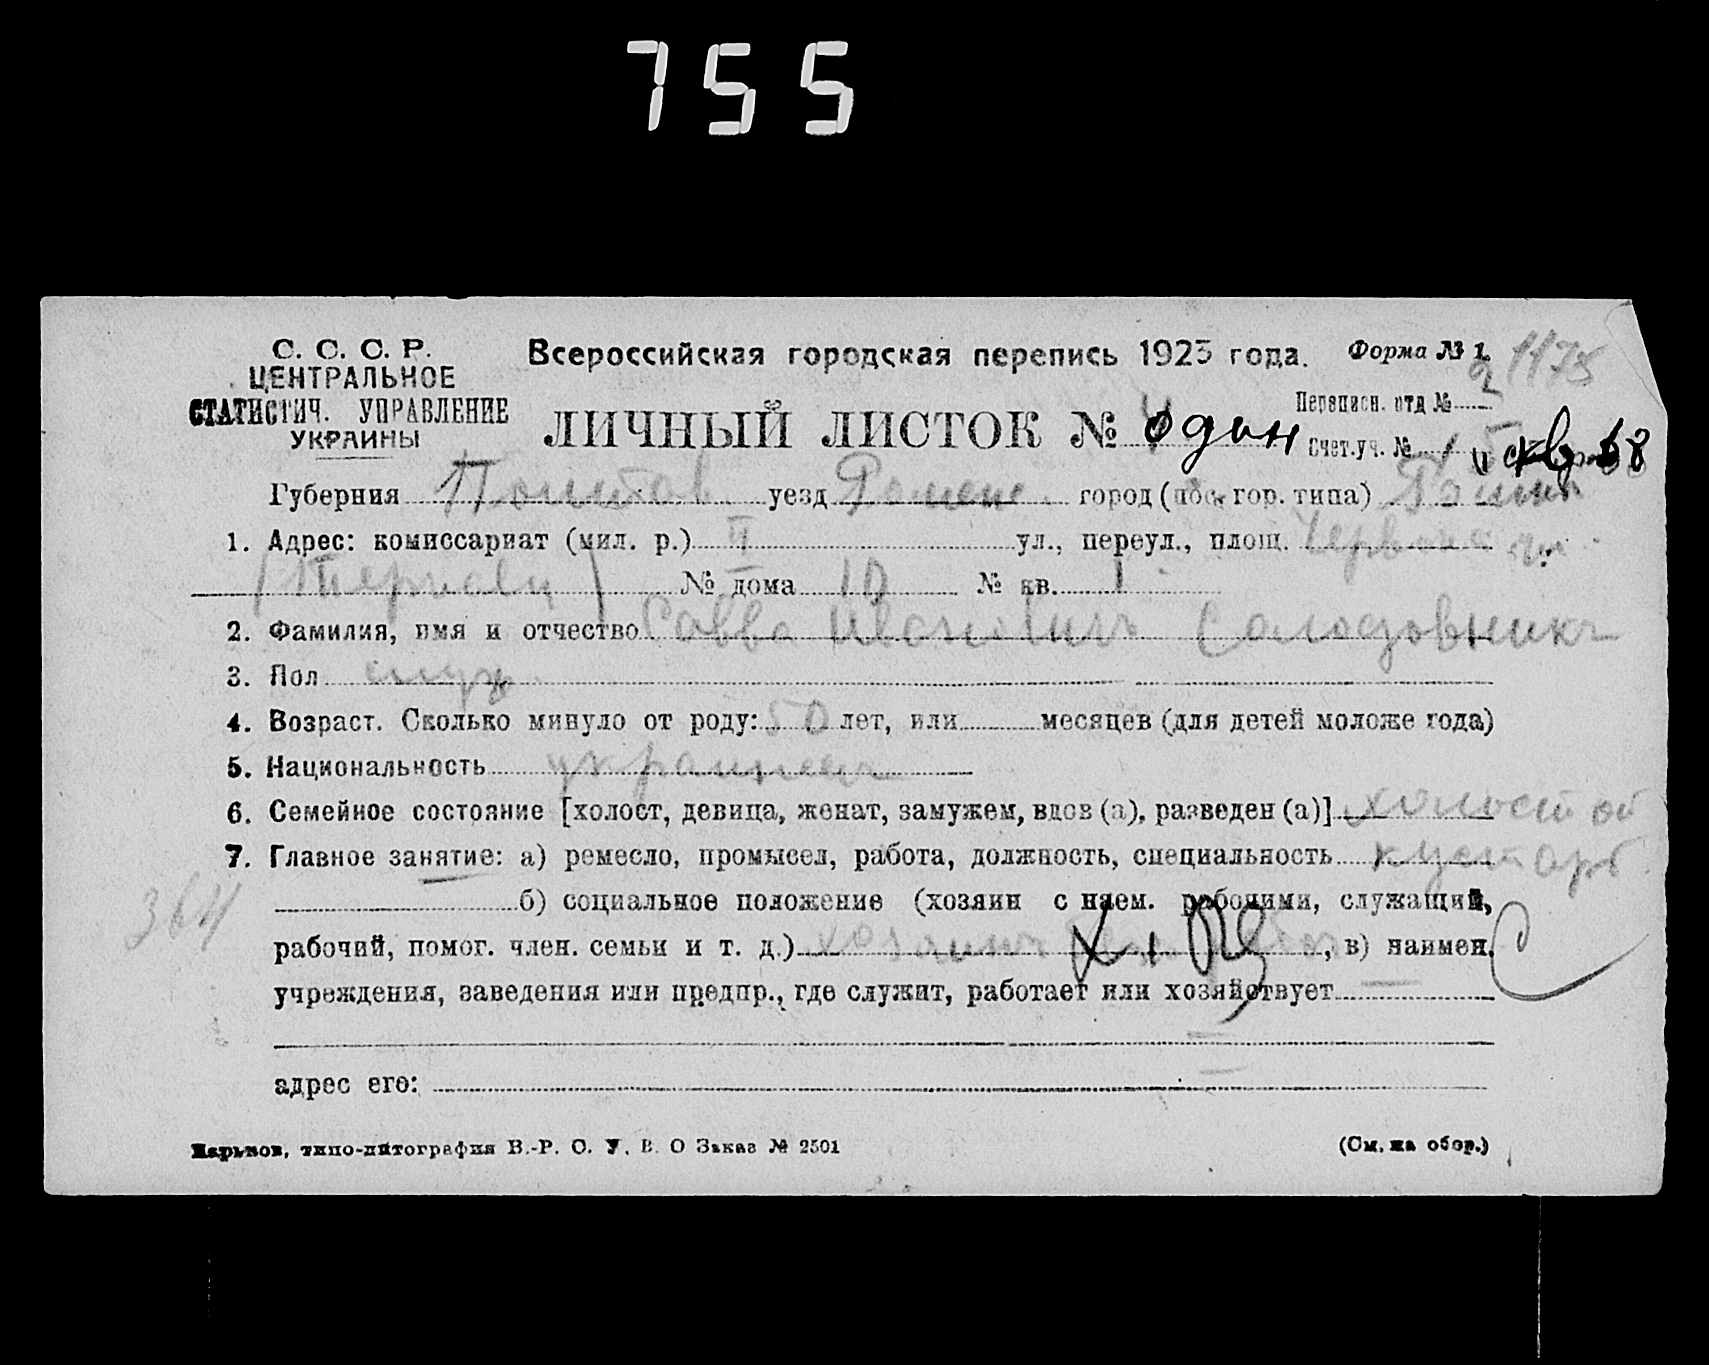 755
С. С. С. Р.
ЦЕНТРАЛЬНОЕ
СТАТИСТИЧ. УПРАВЛЕНИЕ
УКРАИНЫ
Всероссийская городская перепись 1923 года. Форма № 1.
1173
Переписн. отд № 2
ЛИЧНЫЙ ЛИСТОК № один
Счет.уч. №
Губерния Полтав. уезд Роменс. город (пос. гор. типа) Ромны
1. Адрес: комиссариат (мил. р.) II ул., переул., площ.
№ дома 10 № кв. 1
2. Фамилия, имя и отчество Савва Ивановичъ Солодовникъ
3. Пол муж.
4. Возраст. Сколько минуло от роду: 50 лет, или месяцев (для детей моложе года)
5. Национальность украинец
6. Семейное состояние [холост, девица, женат, замужем, вдов (а), разведен (а)] холостой
7. Главное занятие: а) ремесло, промысел, работа, должность, специальность кустарь
364
б) социальное положение (хозяин с наем. рабочими, служащий,
рабочий, помог. член. семьи и т. д.) хозяинъ , в) наимен.
учреждения, заведения или предпр., где служит, работает или хозяйствует
адрес его:
Харьков, типо-литография В.-Р. С. У. В. О Заказ № 2501 (См. на обор.)